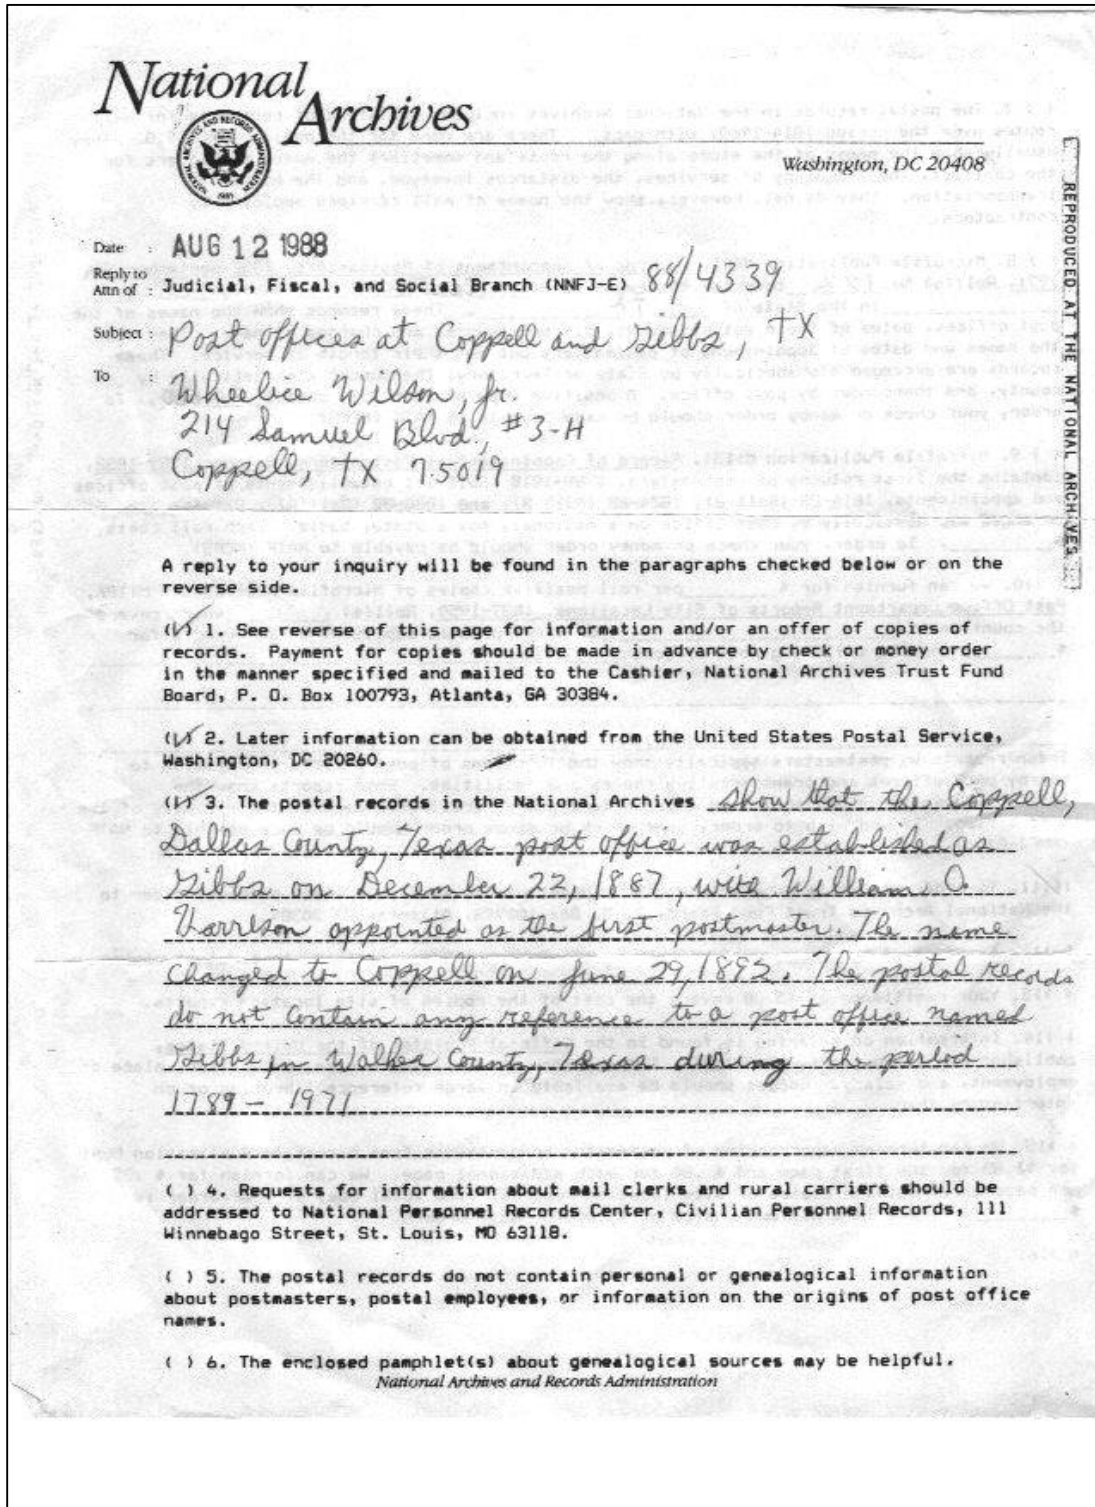 National Archives
Washington, DC 20408
REPRODUCED AT THE NATIONAL ARCHIVES
Date : AUG 12 1988
Reply to
Attn of : Judicial, Fiscal, and Social Branch (NNFJ-E) 88/4339
Subject : Post offices at Coppell and Gibbs, TX
To : Wheelice Wilson, Jr.
214 Samuel Blvd., #3-H
Coppell, TX 75019
A reply to your inquiry will be found in the paragraphs checked below or on the
reverse side.
(✓) 1. See reverse of this page for information and/or an offer of copies of
records. Payment for copies should be made in advance by check or money order
in the manner specified and mailed to the Cashier, National Archives Trust Fund
Board, P. O. Box 100793, Atlanta, GA 30384.
(✓) 2. Later information can be obtained from the United States Postal Service,
Washington, DC 20260.
(✓) 3. The postal records in the National Archives show that the Coppell,
Dallas County, Texas post office was established as
Gibbs on December 22, 1887, with William O.
Harrison appointed as the first postmaster. The name
changed to Coppell on June 29, 1892. The postal records
do not contain any reference to a post office named
Gibbs in Walker County, Texas during the period
1789 - 1971
( ) 4. Requests for information about mail clerks and rural carriers should be
addressed to National Personnel Records Center, Civilian Personnel Records, 111
Winnebago Street, St. Louis, MO 63118.
( ) 5. The postal records do not contain personal or genealogical information
about postmasters, postal employees, or information on the origins of post office
names.
( ) 6. The enclosed pamphlet(s) about genealogical sources may be helpful.
National Archives and Records Administration